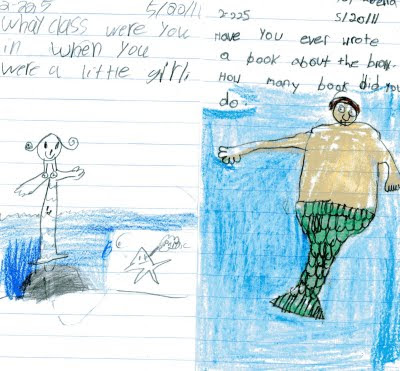 2-225 5/20/11
what class were you
in when you
were a little girl.
2-225 5/20/11
Have you ever wrote
a book about the
How many book did you
do.